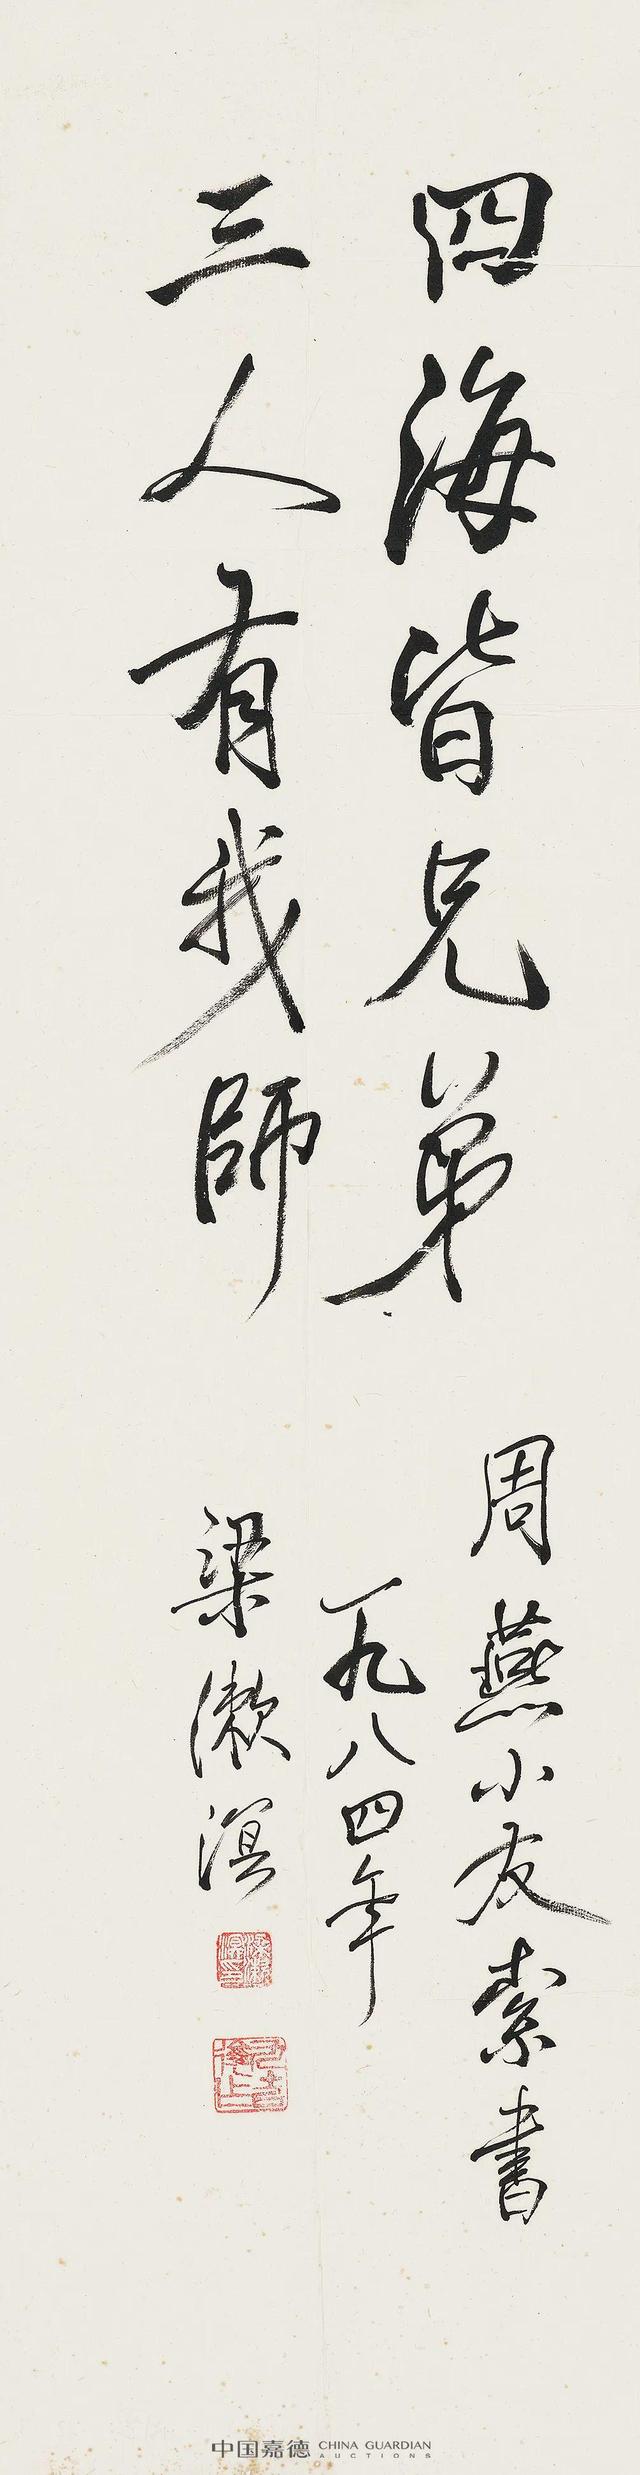 四海皆兄弟
三人有我師
周燕小友索書
一九八四年
梁漱溟
梁漱溟印
中国嘉德 CHINA GUARDIAN
AUCTIONS